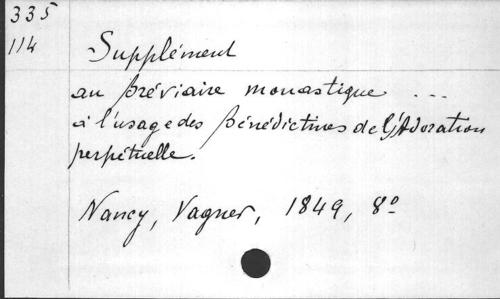 335
114
Supplément
au bréviaire monastique ...
à l'usage des bénédictines de l'Adoration
perpétuelle.
Nancy, Vagner, 1849, 8º